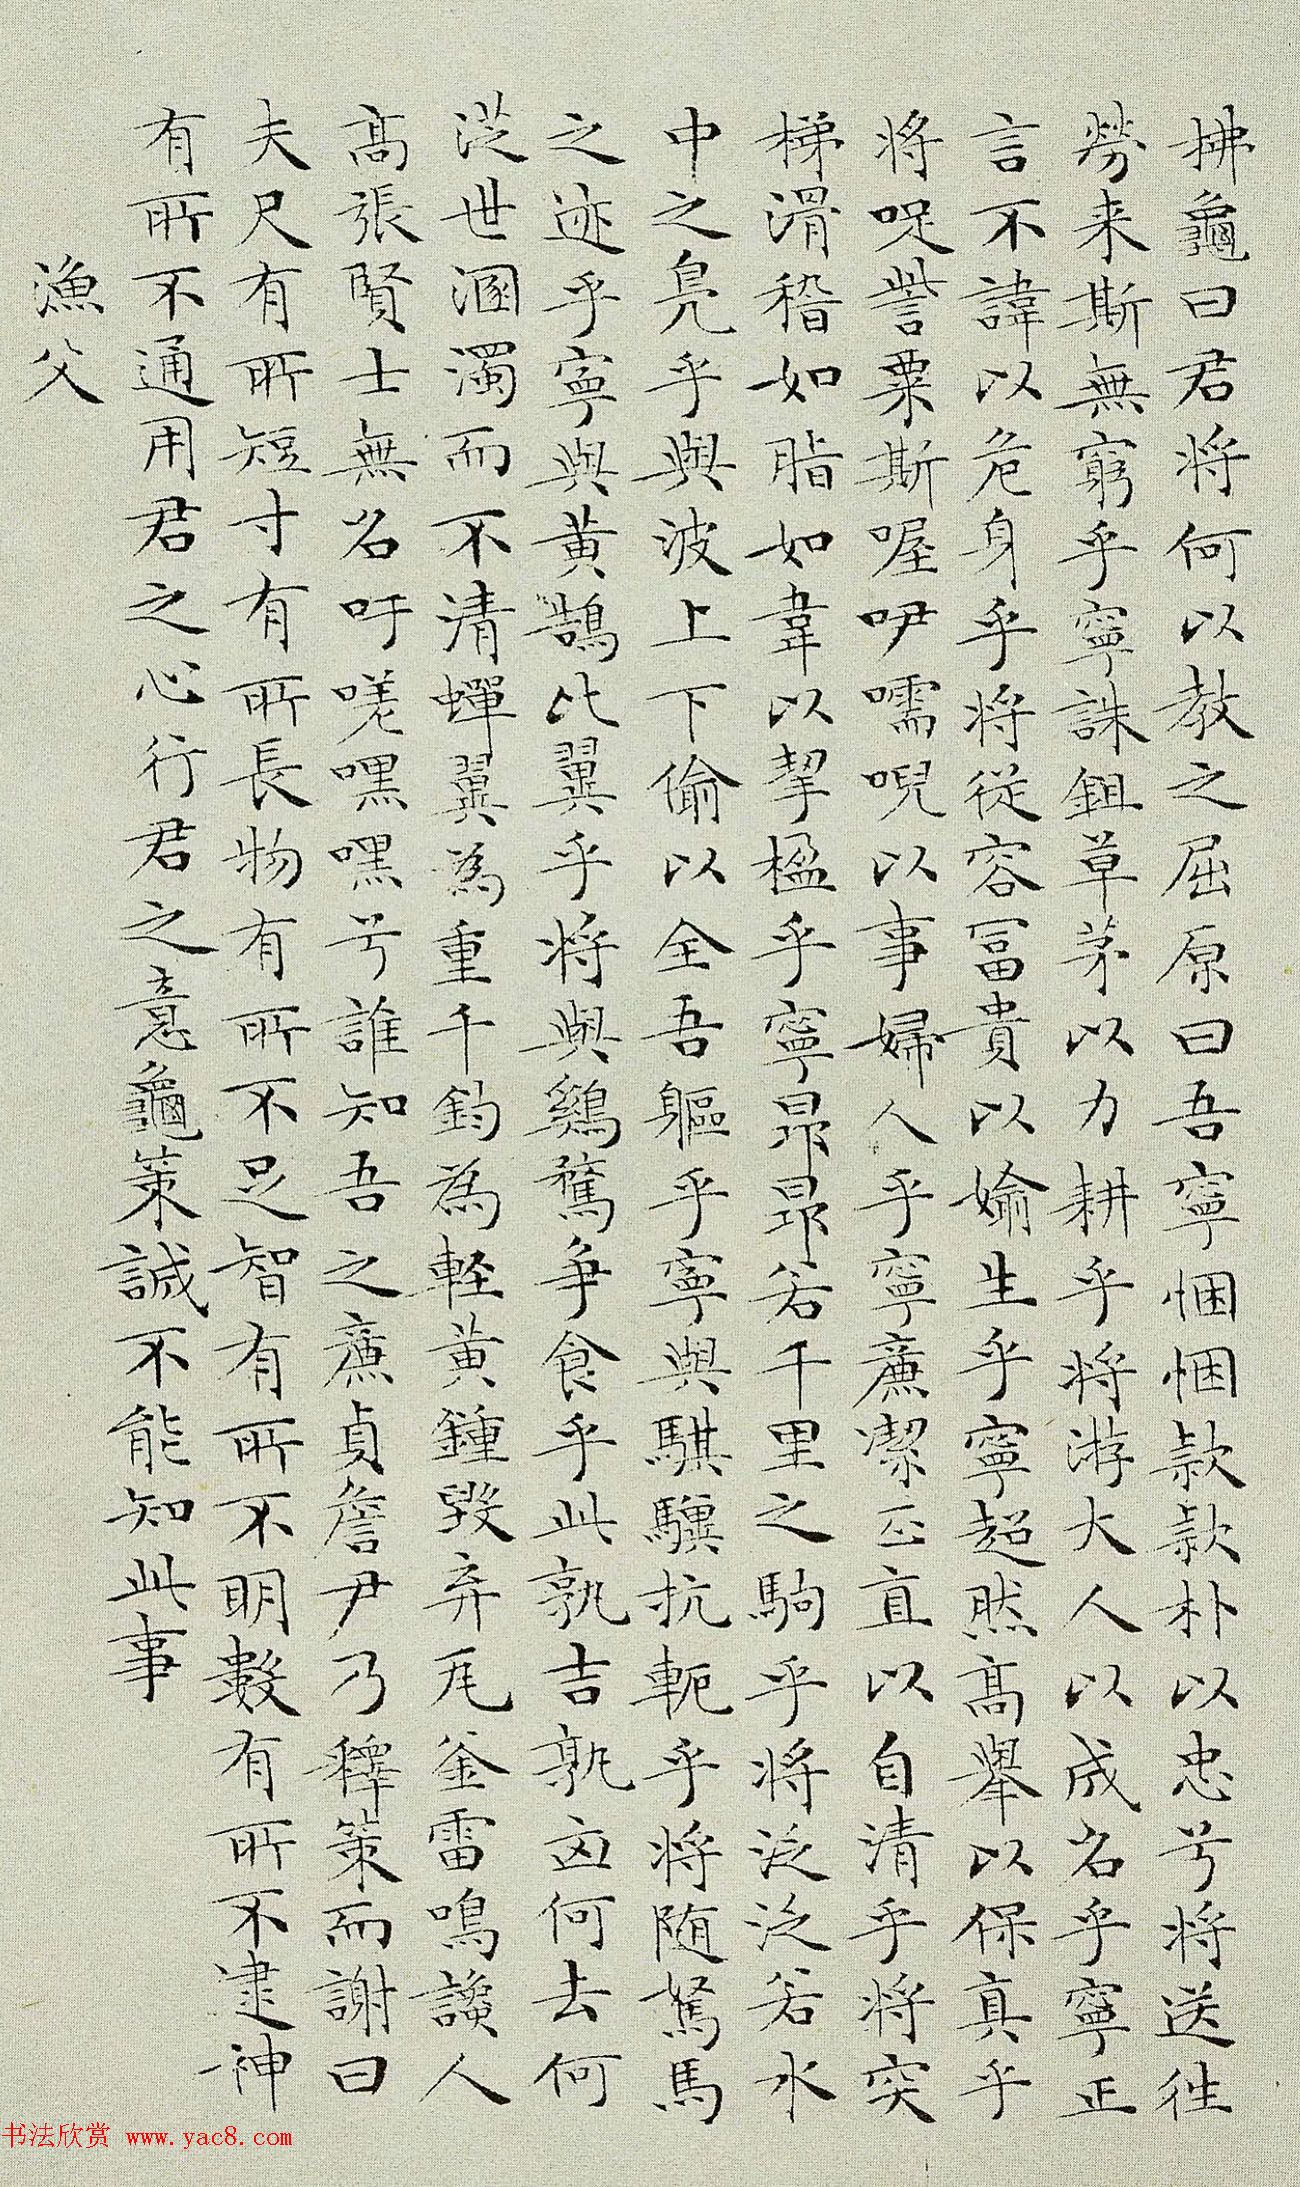 拂龜曰君将何以教之屈原曰吾寧悃悃款款朴以忠兮将送往
勞来斯無窮乎寧誅鉏草茅以力耕乎将游大人以成名乎寧正
言不諱以危身乎将從容冨貴以媮生乎寧超然髙舉以保真乎
将哫訾粟斯喔咿嚅唲以事婦人乎寧廉潔正直以自清乎将突
梯滑稽如脂如韋以挈楹乎寧昂昂若千里之駒乎将泛泛若水
中之鳧乎與波上下偷以全吾軀乎寧與騏驥抗軛乎将随駑馬
之迹乎寧與黄鵠比翼乎将與鷄鶩争食乎此孰吉孰凶何去何
從世溷濁而不清蟬翼為重千鈞為軽黄鍾毀弃瓦釜雷鳴讒人
髙張賢士無名吁嗟嘿嘿兮誰知吾之廉貞詹尹乃釋策而謝曰
夫尺有所短寸有所長物有所不足智有所不明數有所不逮神
有所不通用君之心行君之意龜策誠不能知此事
漁父
书法欣赏 www.yac8.com